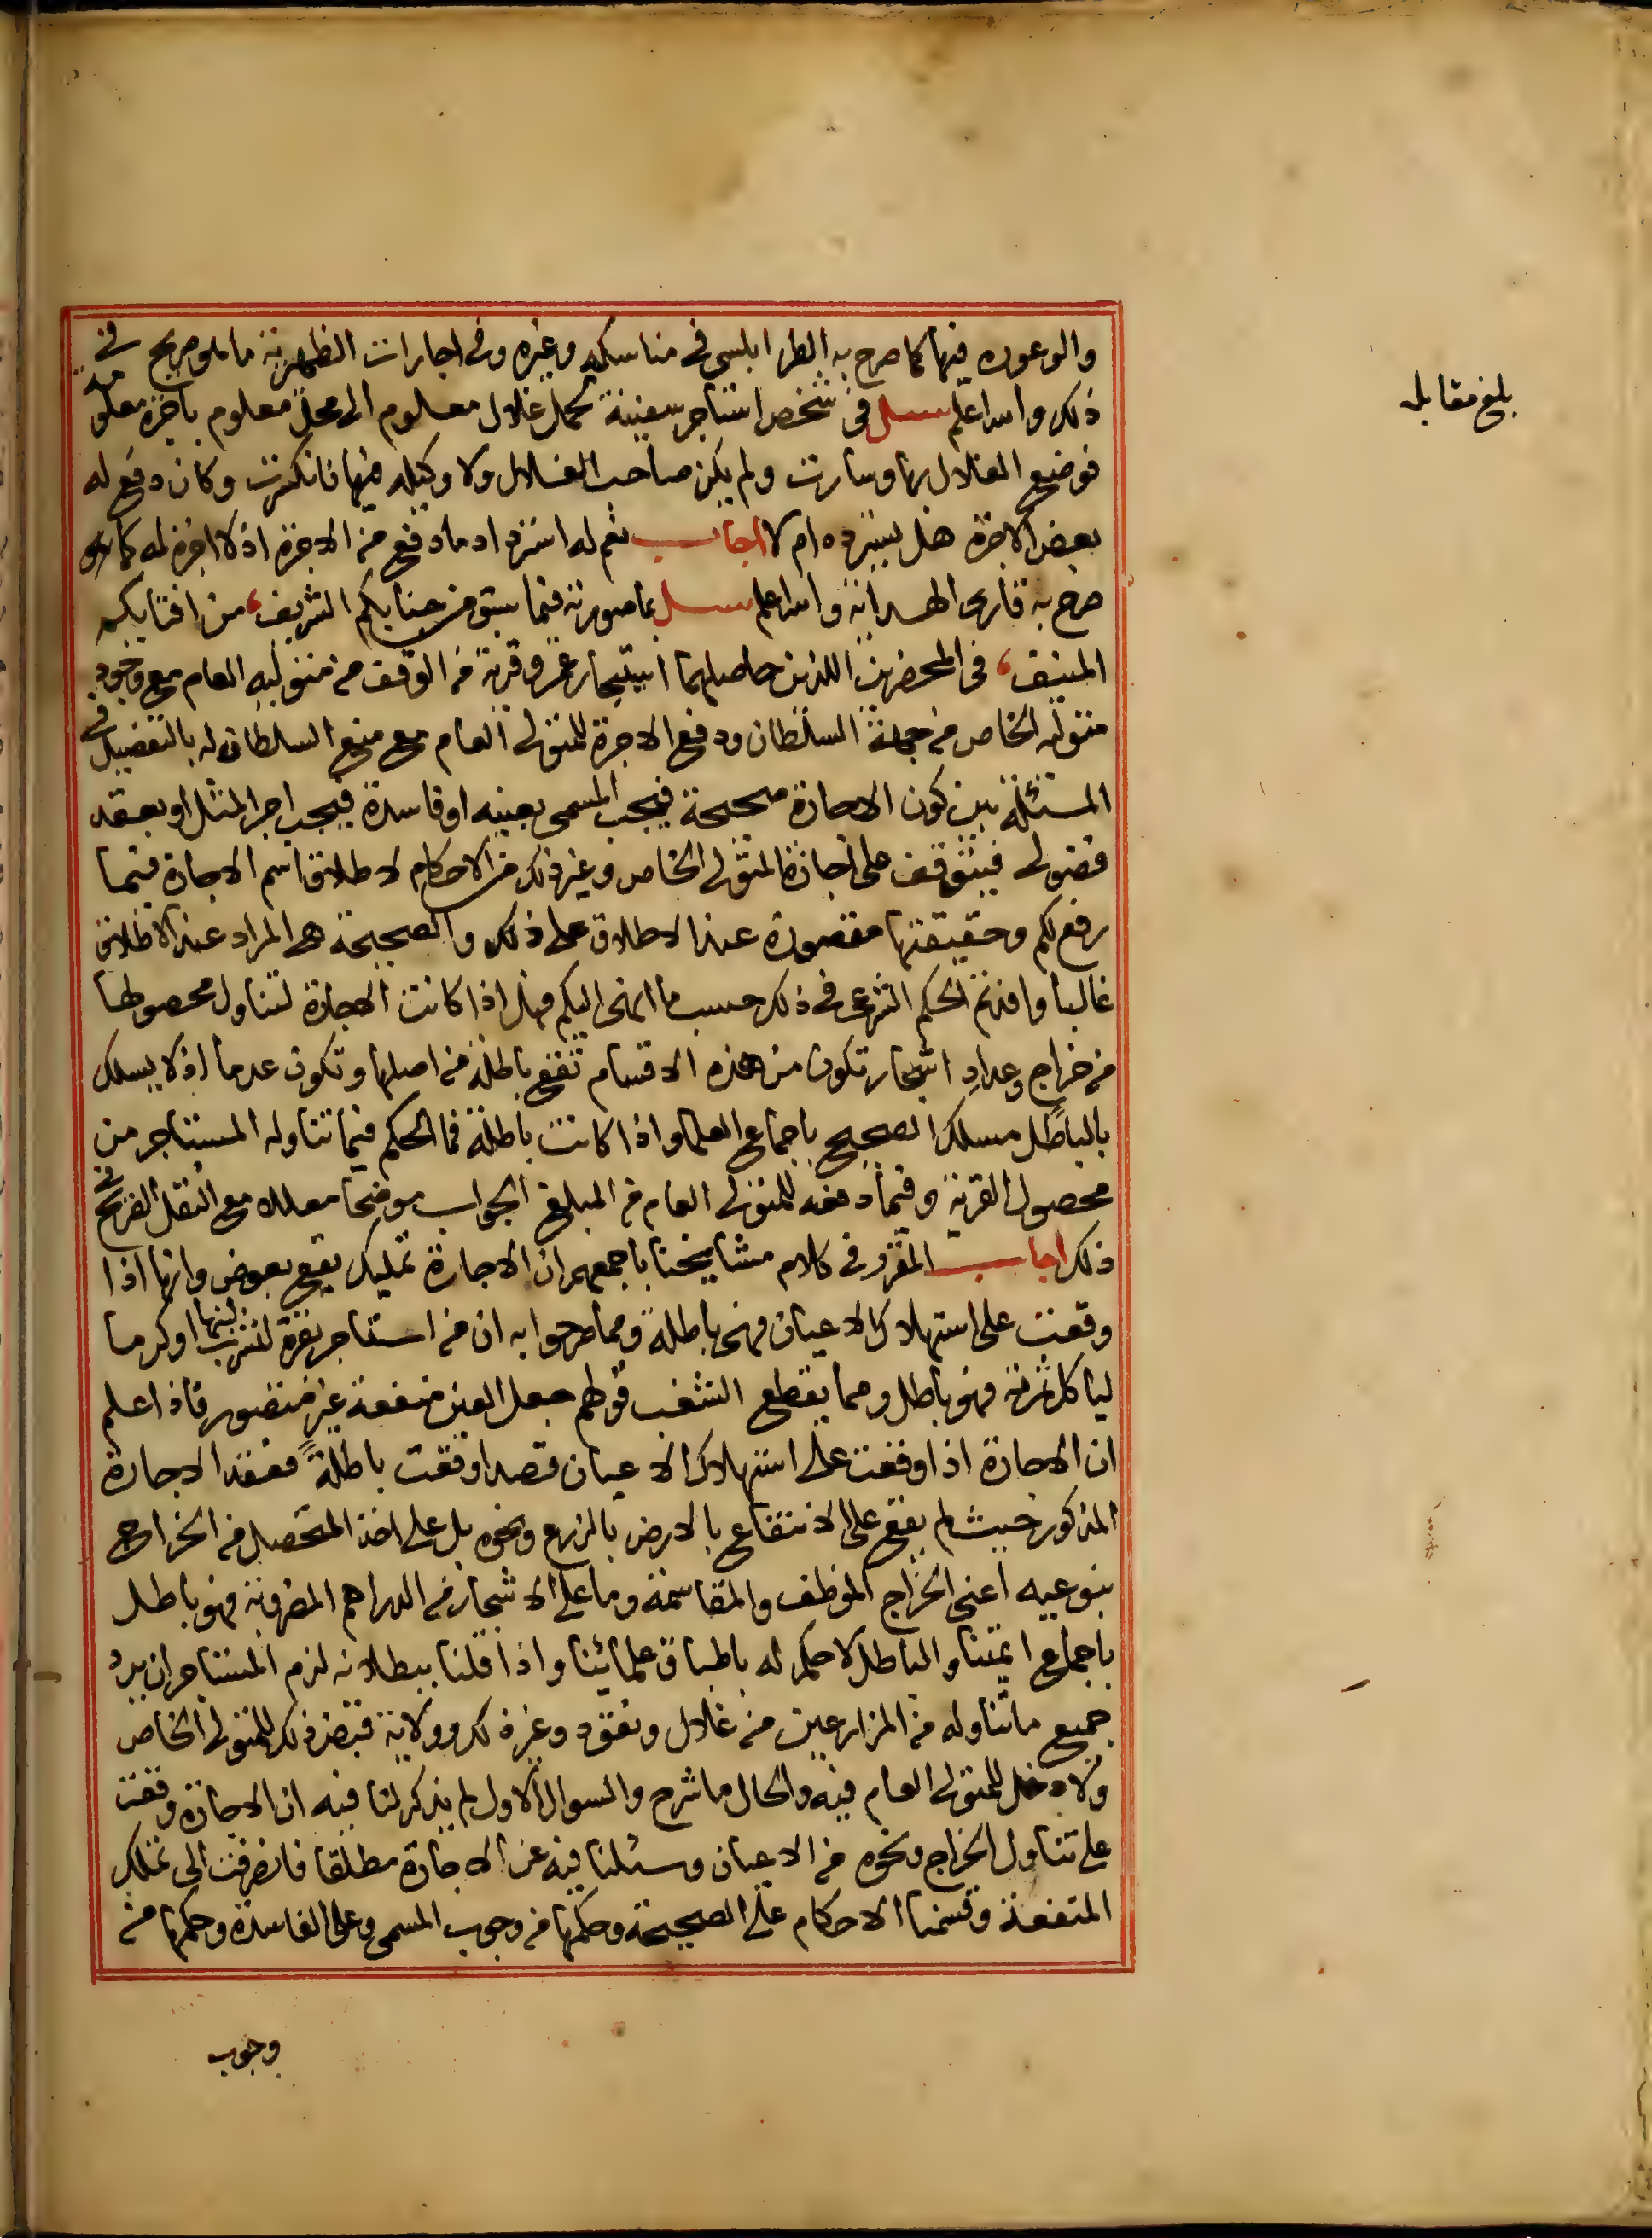 والوعورة فيها كما صرح به الطرابلسي في مناسكه وغيره وفي اجارات الظهيرية ما هو صريح في
ذلك والله اعلم سئل في شخص استاجر سفينة لحمل غلال معلوم الى محل معلوم باجرة معلومة
فوضع الغلال بها وسارت ولم يكن صاحب الغلال ولا وكيله فيها فانكسرت وكان دفع له
بعض الاجرة هل يسترده ام لا اجاب نعم له استرداد ما دفع من الاجرة اذ لا اجرة له كما
صرح به قارى الهداية والله اعلم سئل بما صورته فيما سبق من جنابكم الشريف، من افتايكم
المنيف، في المحضرين اللذين حاصلهما استيجار عمرو قرية من الوقف من متوليه العام مع وجود
متوليه الخاص من جهة السلطان ودفع الاجرة للمتولي العام مع منع السلطان له بالتفصيل في
المسئلة بين كون الاجارة صحيحة فيجب المسمى بعينه او فاسدة فيجب اجر المثل او بعقد
فضولي فيتوقف على اجازة المتولي الخاص وغير ذلك من الاحكام لاطلاق اسم الاجارة فيما
رفع لكم وحقيقتها مقصورة عند الاطلاق على ذلك والصحيحة هي المراد عند الاطلاق
غالبا وافدتم الحكم الشرعي في ذلك حسب ما انهى اليكم فهل اذا كانت الاجارة لتناول محصولها
من خراج وعداد اشجار تكون من هذه الاقسام تقع باطلة من اصلها وتكون عدما اذ لا يسلك
بالباطل مسلك الصحيح باجماع العلما واذا كانت باطلة فما الحكم فيما تناوله المستاجر من
محصول القرية وفيما دفعه للمتولي العام من المبلغ الجواب موضحا معللا مع النقل الصريح في
ذلك اجاب المقرر في كلام مشايخنا باجمعهم ان الاجارة تمليك نفع بعوض وانها اذا
وقعت على استهلاك الاعيان فهي باطلة ومما صرحوا به ان من استاجر بقرة لشرب لبنها او كرما
لياكل ثمرته فهو باطل ومما يقطع الشغب قولهم جعل العين منفعة غير متصور فاذا علم
ان الاجارة اذا وقعت على استهلاك الاعيان قصدا وقعت باطلة فعقد الاجارة
المذكور حيث لم يقع على الانتفاع بالارض بالزرع ونحوه بل على اخذ المتحصل من الخراج
بنوعيه اعنى الخراج الموظف والمقاسمة وما على الاشجار من الدراهم المضروبة فهو باطل
باجماع ايمتنا والباطل لا حكم له باطباق علمائنا واذا قلنا ببطلانه لزم المستاجر ان يرد
جميع ما تناوله من المزارعين من غلال ونقود وغير ذلك وولاية قبض ذلك للمتولي الخاص
ولا دخل للمتولي العام فيه والحال ما شرح والسوال الاول لم يذكر لنا فيه ان الاجارة وقعت
على تناول الخراج ونحوه من الاعيان وسئلنا فيه عن الاجارة مطلقا فانصرفت الى تملك
المنفعة وقسمنا الاحكام على الصحيحة وحكمها من وجوب المسمى وعلى الفاسدة وحكمها من
وجوب
بلغ مقابلة